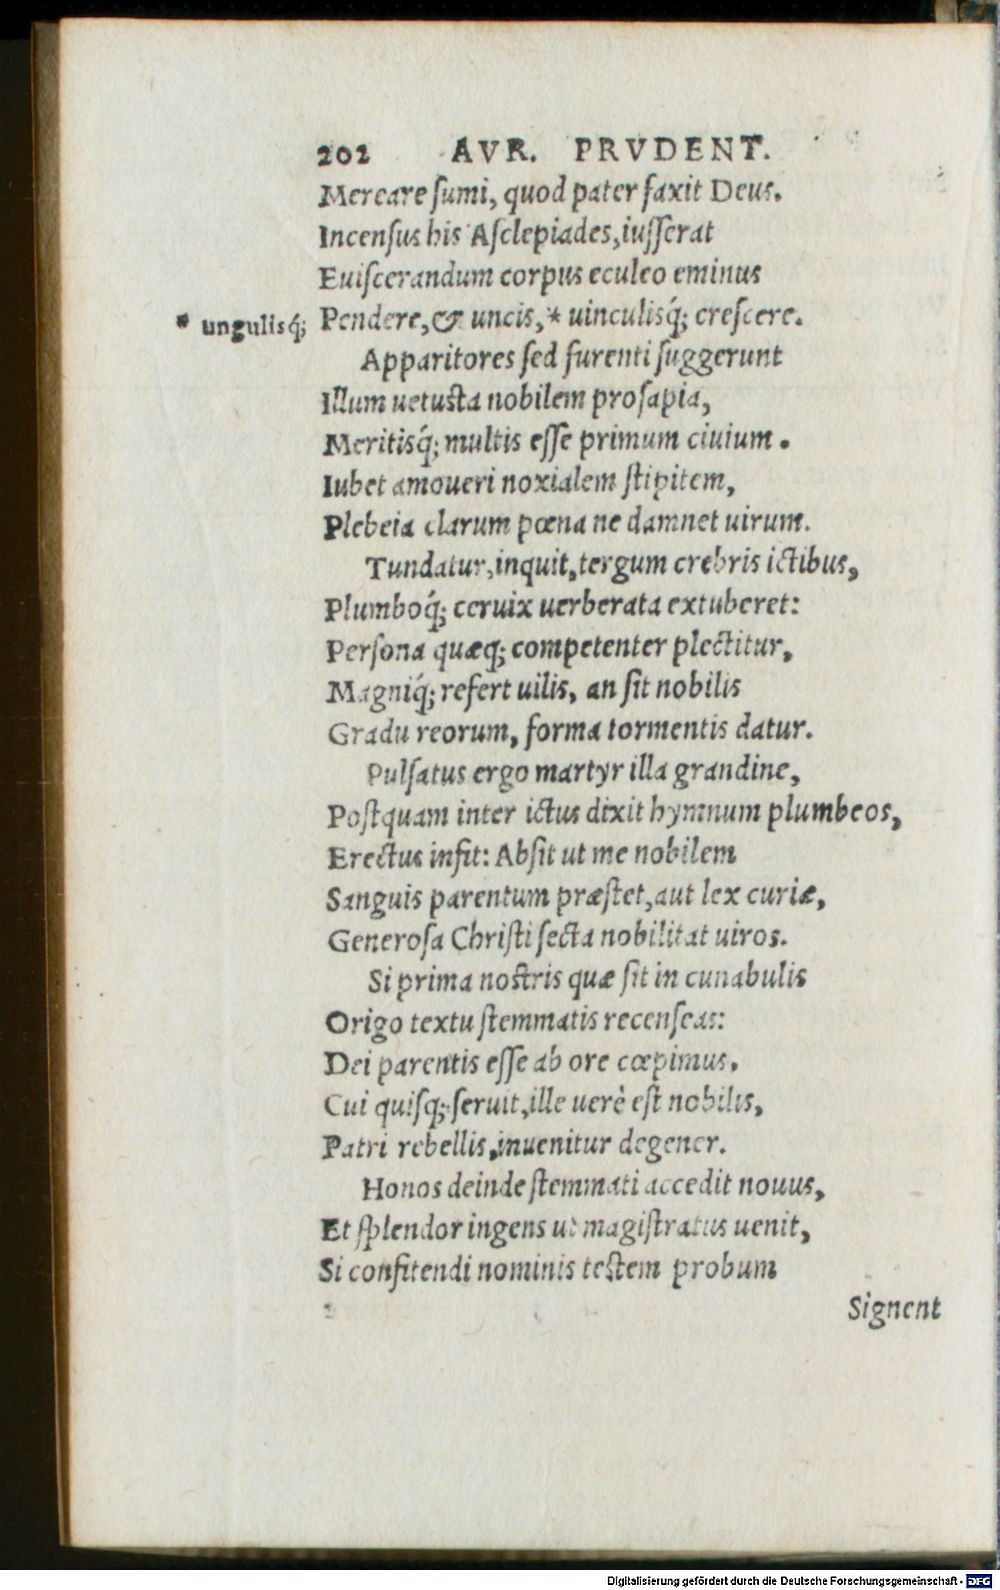 202 AVR. PRVDENT.
Mereare sumi, quod pater faxit Deus.
Incensus his Asclepiades, iusserat
Euiscerandum corpus eculeo eminus
* ungulisq́; Pendere, & uncis, * uinculisq́; crescere.
Apparitores sed furenti suggerunt
Illum uetusta nobilem prosapia,
Meritisq́; multis esse primum ciuium.
Iubet amoueri noxialem stipitem,
Plebeia clarum pœna ne damnet uirum.
Tundatur, inquit, tergum crebris ictibus,
Plumboq́; ceruix uerberata extuberet:
Persona quæq; competenter plectitur,
Magniq́; refert uilis, an sit nobilis
Gradu reorum, forma tormentis datur.
Pulsatus ergo martyr illa grandine,
Postquam inter ictus dixit hymnum plumbeos,
Erectus infit: Absit ut me nobilem
Sanguis parentum præstet, aut lex curiæ,
Generosa Christi secta nobilitat uiros.
Si prima nostris quæ sit in cunabulis
Origo textu stemmatis recenseas:
Dei parentis esse ab ore cœpimus.
Cui quisq; seruit, ille uerè est nobilis,
Patri rebellis, inuenitur degener.
Honos deinde stemmati accedit nouus,
Et splendor ingens ut magistratus uenit,
Si confitendi nominis testem probum
Signent
Digitalisierung gefördert durch die Deutsche Forschungsgemeinschaft - DFG